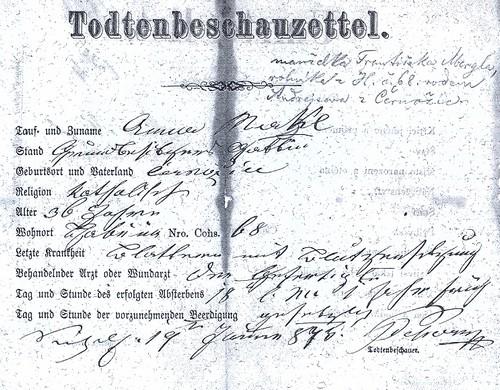 Todtenbeschauzettel.
manželka Františka Mergla,
rolníka z H. č. 68. rodem
Andrejsova z Černožic
Tauf- und Zuname Anna
Stand Grundbesitzers Gattin
Geburtsort und Vaterland Černožice
Religion katholisch
Alter 36 Jahre
Wohnort Nro. Cons. 68
Letzte Krankheit Blattern mit Blutzersetzung
Behandelnder Arzt oder Wundarzt Der Gefertigte
Tag und Stunde des erfolgten Absterbens 18 1 Uhr früh
Tag und Stunde der vorzunehmenden Beerdigung gesetzlich
19 Jänner 873.
Todtenbeschauer.